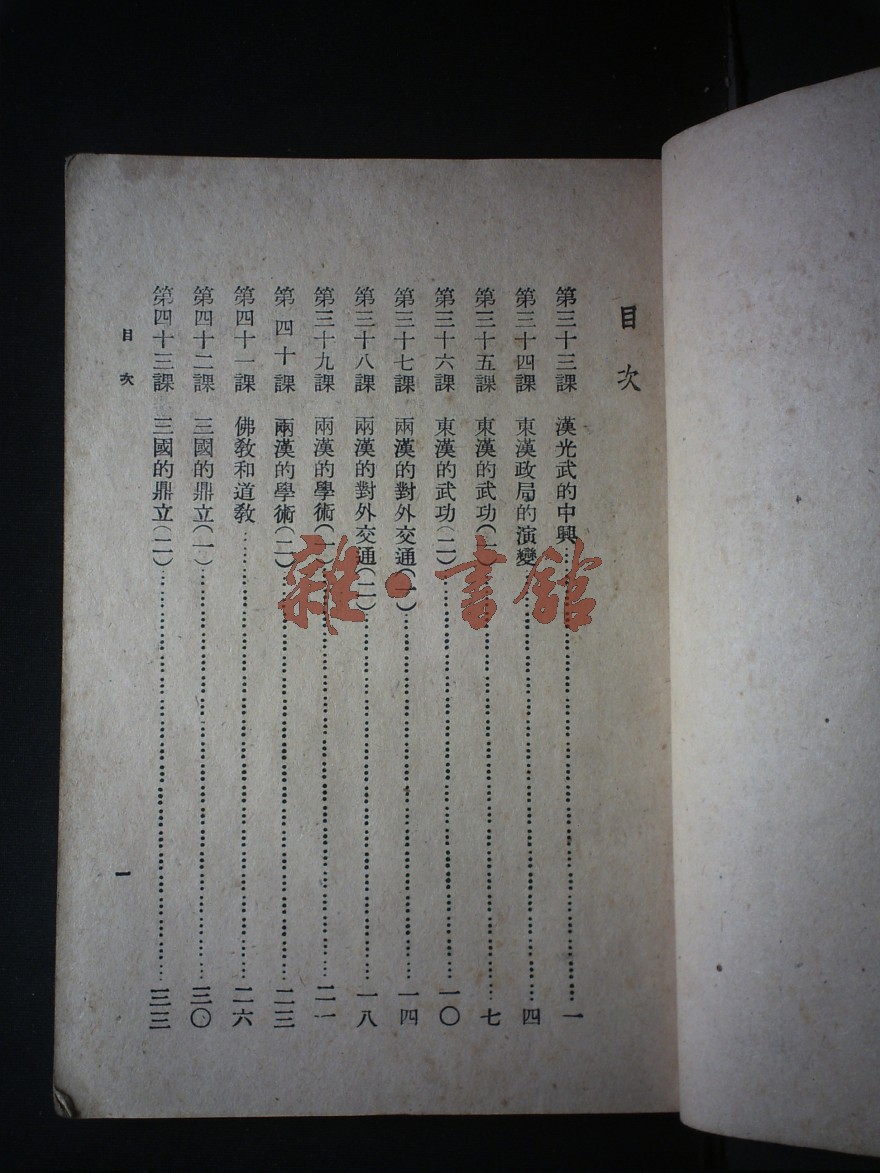 目次
第三十三課 漢光武的中興……一
第三十四課 東漢政局的演變……四
第三十五課 東漢的武功(一)……七
第三十六課 東漢的武功(二)……一〇
第三十七課 兩漢的對外交通(一)……一四
第三十八課 兩漢的對外交通(二)……一八
第三十九課 兩漢的學術(一)……二一
第四十課 兩漢的學術(二)……二三
第四十一課 佛教和道教……二六
第四十二課 三國的鼎立(一)……三〇
第四十三課 三國的鼎立(二)……三三
目次
一
雜·書館